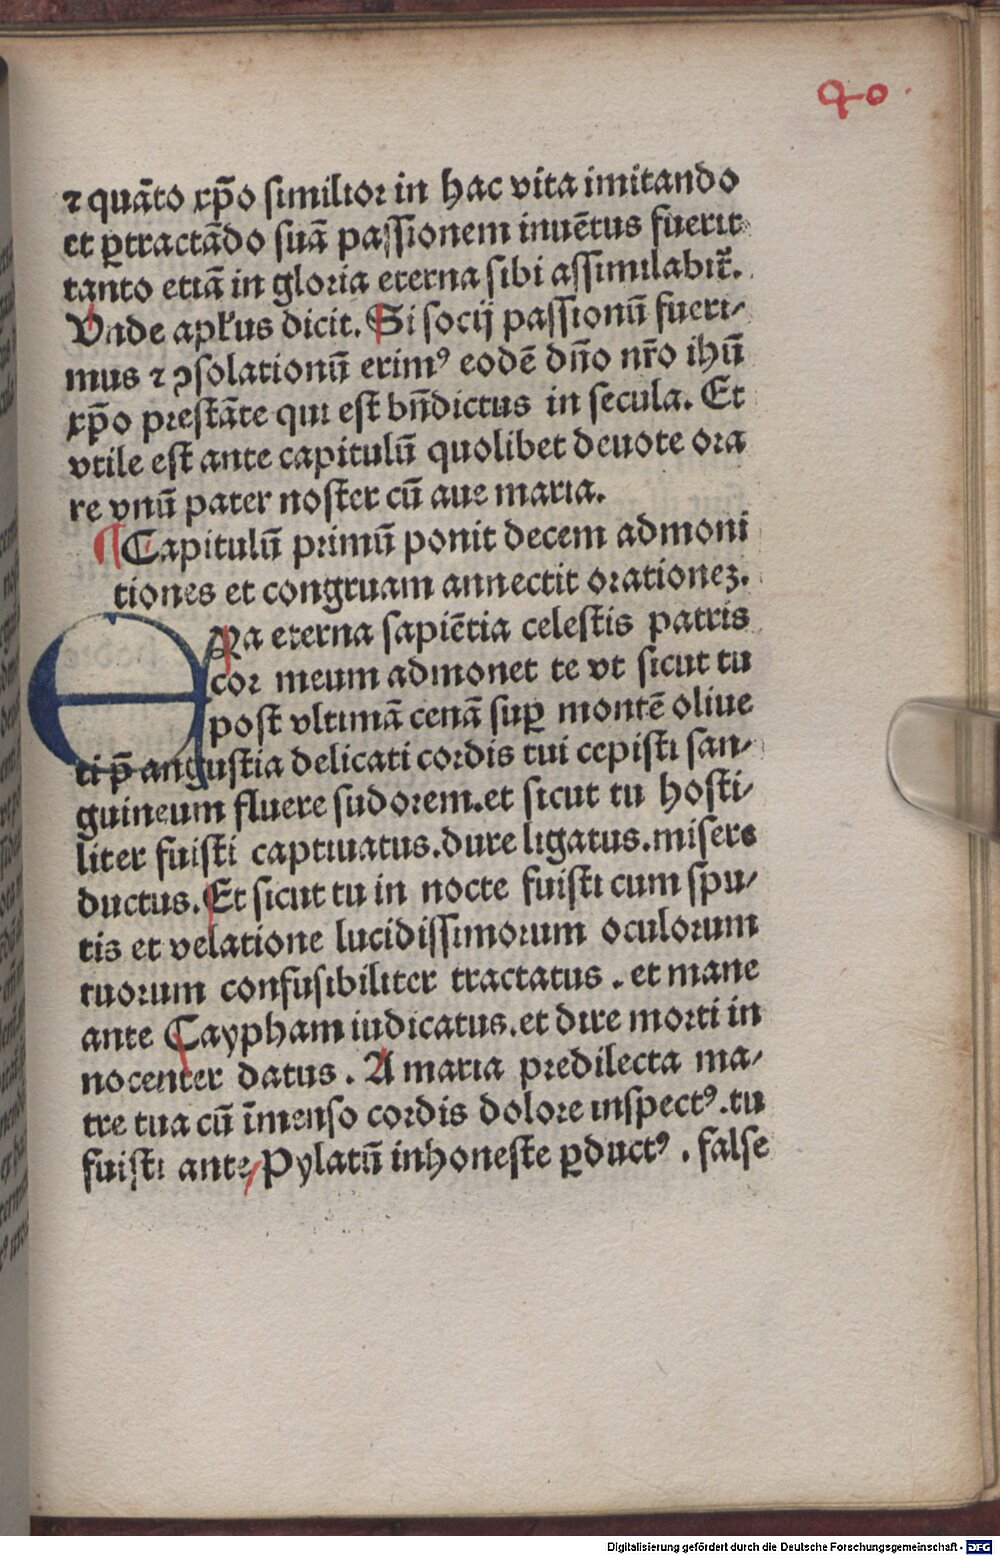 40
⁊ quāto xp̄o similior in hac vita imitando
et ꝑtractādo suā passionem inuētus fuerit
tanto etiā in gloria eterna sibi assimilabit᷑.
Vnde apl'us dicit. Si socij passionū fueri/
mus ⁊ ꝯsolationū erimꝰ eodē dn̄o nr̄o ihū
xp̄o prestāte qui est bn̄dictus in secula. Et
vtile est ante capitulū quolibet deuote ora
re vnū pater noster cū aue maria.
¶ Capitulū primū ponit decem admoni
tiones et congruam annectit orationeꝫ.
ERa eterna sapiētia celestis patris
cor meum admonet te vt sicut tu
post vltimā cenā suꝑ montē oliue
ti p̄ angustia delicati cordis tui cepisti san/
guineum fluere sudorem.et sicut tu hosti/
liter fuisti captiuatus.dure ligatus.misere
ductus. Et sicut tu in nocte fuisti cum spu/
tis et velatione lucidissimorum oculorum
tuorum confusibiliter tractatus . et mane
ante Caypham iudicatus.et dire morti in
nocenter datus . A maria predilecta ma/
tre tua cū īmenso cordis dolore inspectꝰ.tu
fuisti ante Pylatū inhoneste ꝑductꝰ . false
Digitalisierung gefördert durch die Deutsche Forschungsgemeinschaft - DFG